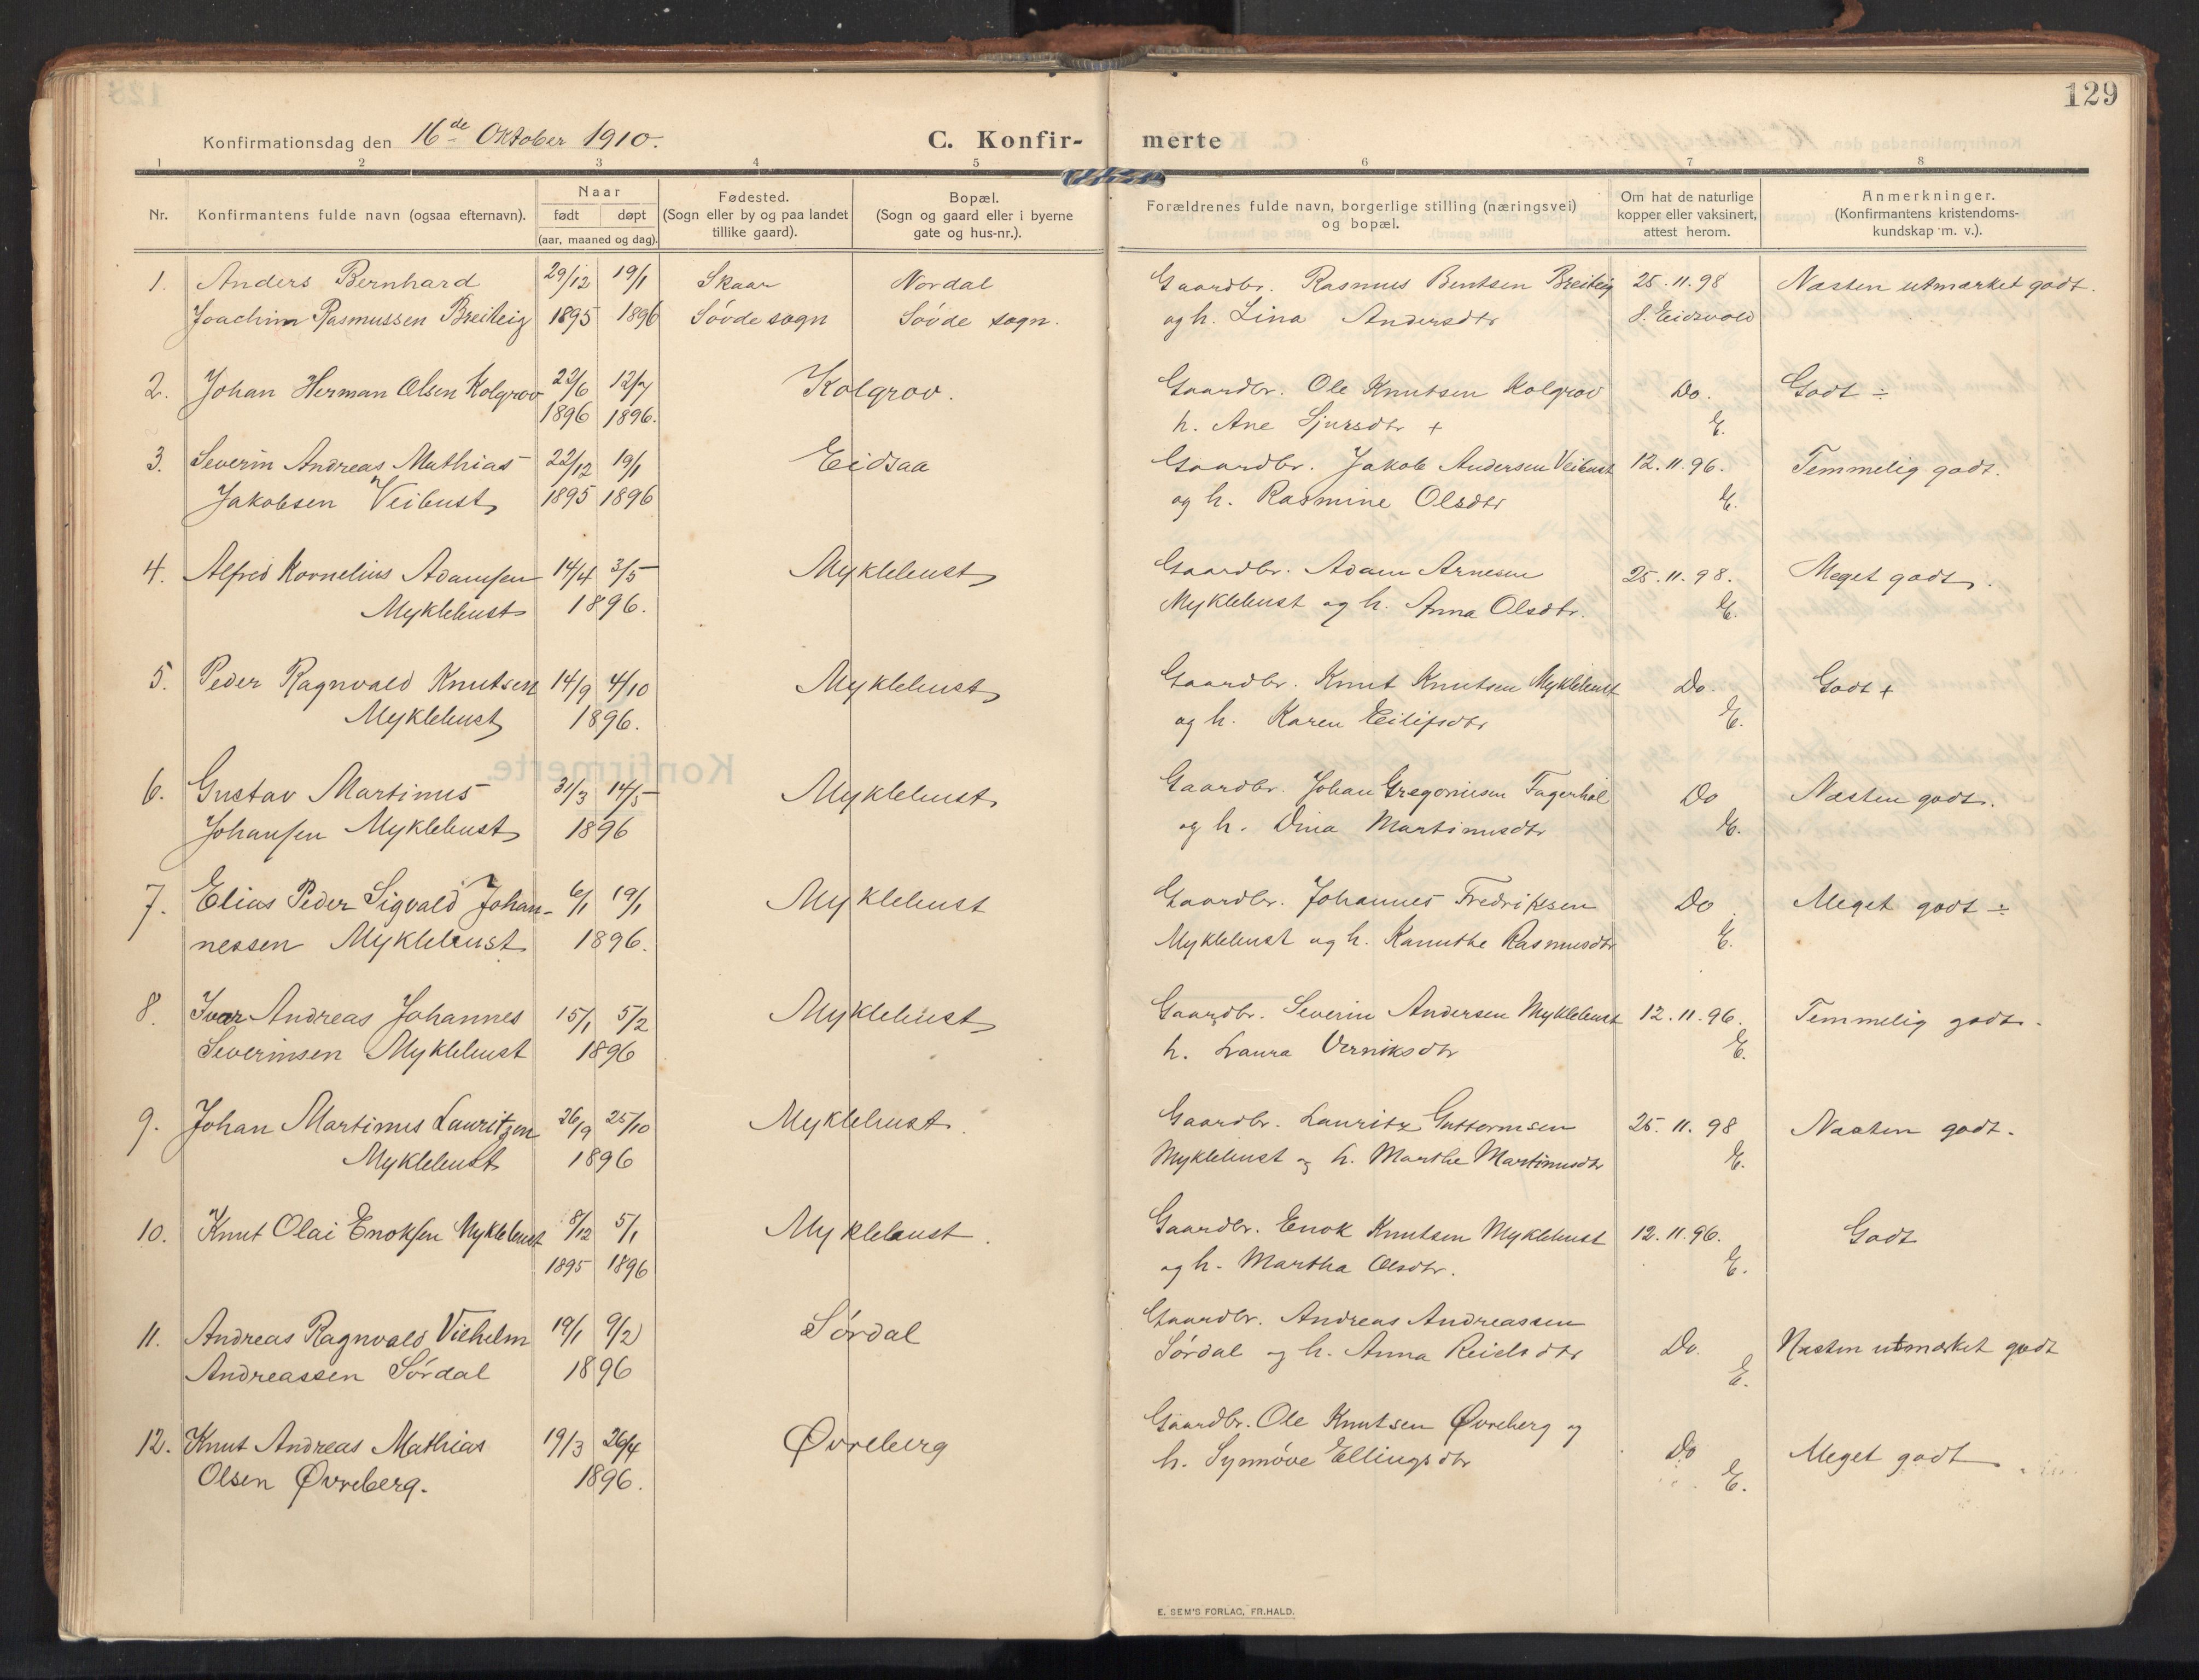 129
Konfirmationsdag den 16de Oktober 1910.
C. Konfir- merte
1 2 3 4 5 6 7 8
Nr.
Konfirmantens fulde navn (ogsaa efternavn).
Naar
født døpt
(aar, maaned og dag).
Fødested.
(Sogn eller by og paa landet
tillike gaard).
Bopæl.
(Sogn og gaard eller i byerne
gate og hus-nr.).
Forældrenes fulde navn, borgerlige stilling (næringsvei)
og bopæl.
Om hat de naturlige
kopper eller vaksinert,
attest herom.
Anmerkninger.
(Konfirmantens kristendoms-
kundskap m. v.).
1. Anders Bernhard 29/12 19/1 Skaar Nordal Gaardbr. Rasmus Bentsen Breiteig 25.11.98 Næsten utmærket godt.
Joachim Rasmussen Breiteig 1895 1896 Søvde sogn Søvde sogn. og h. Lina Andersdtr S. Eidsvold
2. Johan Herman Olsen Kolgrov 22/6 12/7 Kolgrov. Gaardbr. Ole Knutsen Kolgrov Do. Godt ÷
1896 1896. h. Ane Sjursdtr + E.
3. Severin Andreas Mathias 22/12 19/1 Eidsaa Gaardbr. Jakob Andersen Veibust 12.11.96. Temmelig godt.
Jakobsen Veibust 1895 1896 og h. Rasmine Olsdtr E.
4. Alfred Kornelius Adamsen 14/4 3/5 Myklebust Gaardbr. Adam Arnesen 25.11.98. Meget godt.
Myklebust 1896. Myklebust og h. Anna Olsdtr. E.
5. Peder Ragnvald Knutsen 14/9 4/10 Myklebust Gaardbr. Knut Knutsen Myklebust Do. Godt +
Myklebust 1896. og h. Karen Eilifsdtr E.
6. Gustav Martinus 31/3 14/5 Myklebust Gaardbr. Johan Gregoriusen Fagerhol Do Næsten godt.
Johansen Myklebust 1896 og h. Dina Martinusdtr E.
7. Elias Peder Sigvald Johan- 6/1 19/1 Myklebust Gaardbr. Johannes Fredriksen Do Meget godt ÷
nessen Myklebust 1896. Myklebust og h. Kanuthe Rasmusdtr E.
8. Ivar Andreas Johannes 15/1 5/2 Myklebust Gaardbr. Severin Andersen Myklebust 12.11.96. Temmelig godt.
Severinsen Myklebust 1896 h. Laura Verniksdtr E.
9. Johan Martinus Lauritzen 26/9 25/10 Myklebust. Gaardbr. Lauritz Guttormsen 25.11.98 Næsten godt.
Myklebust 1896 Myklebust og h. Marthe Martinusdtr E.
10. Knut Olai Enoksen Myklebust 8/12 5/1 Myklebust. Gaardbr. Enok Knutsen Myklebust 12.11.96. Godt
1895 1896 og h. Martha Olsdtr. E.
11. Andreas Ragnvald Vilhelm 19/1 9/2 Sørdal Gaardbr. Andreas Andreassen
Andreassen Sørdal 1896 Sørdal og h. Anna Reielsdtr Do. E. Næsten utmærket godt
12. Knut Andreas Mathias 19/3 26/4 Øvreberg Gaardbr. Ole Knutsen Øvreberg og Do Meget godt
Olsen Øvreberg. 1896. h. Synnøve Ellingsdtr E.
E. SEM'S FORLAG, FR.HALD.